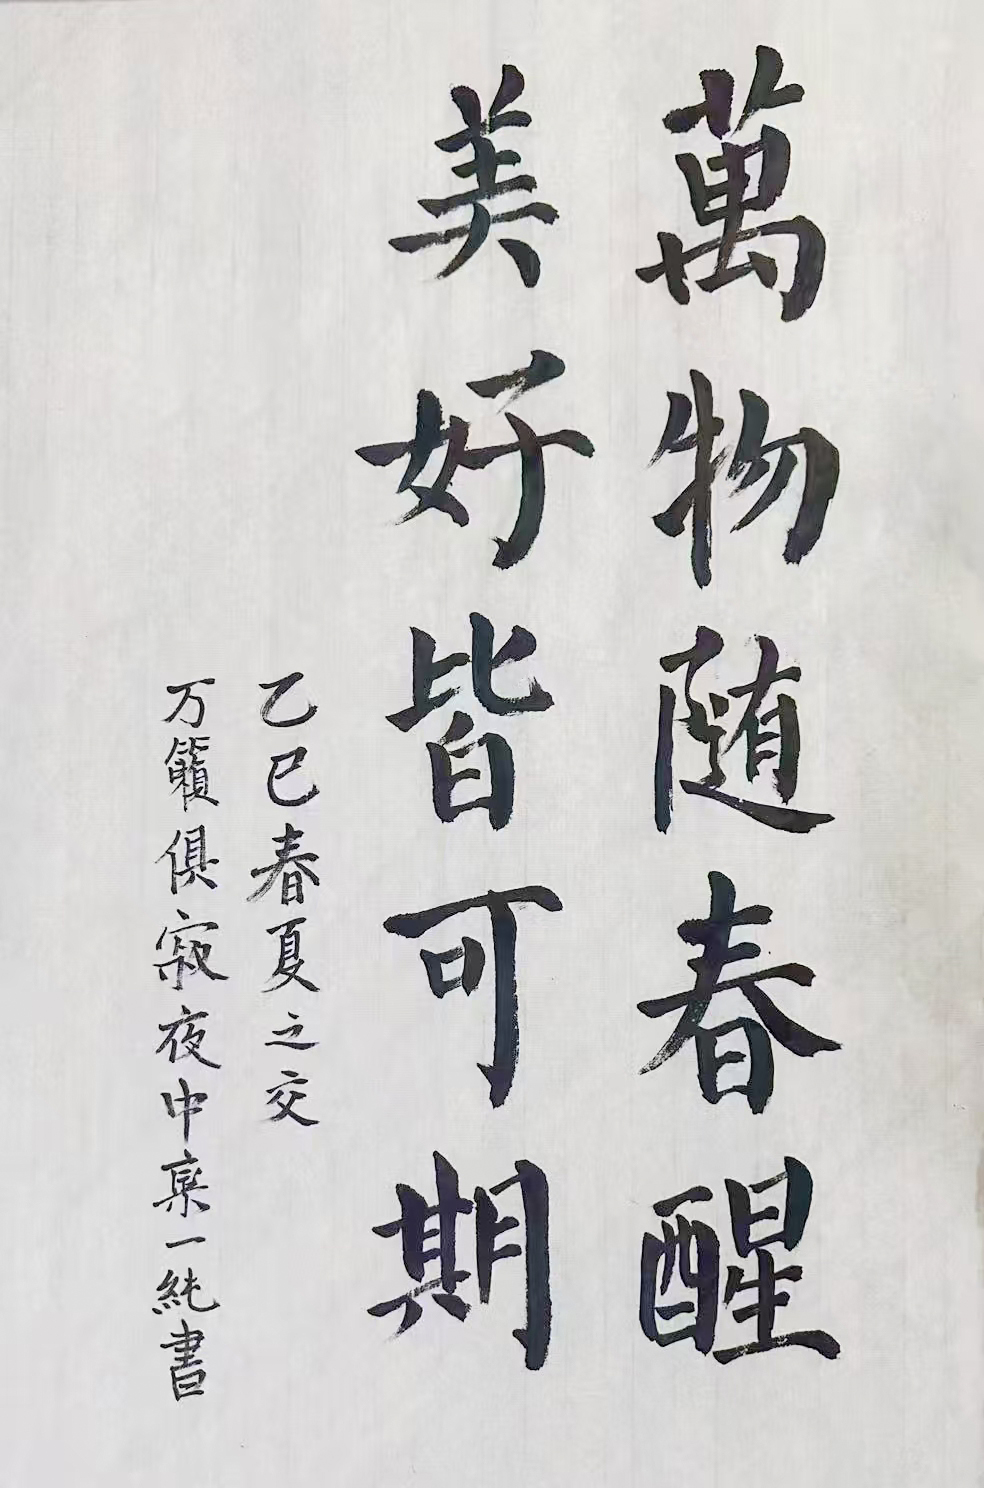 萬物随春醒
美好皆可期
乙巳春夏之交
万籟俱寂夜中棄一純書